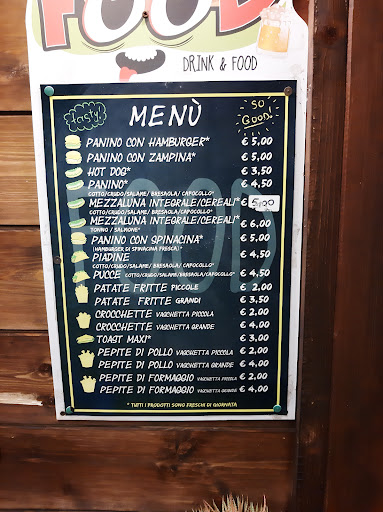 FOOD
DRINK & FOOD
tasty!
MENÙ
SO GOOD!
PANINO CON HAMBURGER* € 5,00
PANINO CON ZAMPINA* € 5,00
HOT DOG* € 3,50
PANINO* € 4,50
COTTO/CRUDO/SALAME/ BRESAOLA/ CAPOCOLLO*
MEZZALUNA INTEGRALE/CEREALI* € 5,00
COTTO/CRUDO/SALAME/ BRESAOLA/CAPOCOLLO*
MEZZALUNA INTEGRALE/CEREALI* € 6,00
TONNO / SALMONE*
PANINO CON SPINACINA* € 5,00
(HAMBURGER DI SPINACINA FRESCA)*
PIADINE € 4,50
COTTO/CRUDO/SALAME/ BRESAOLA/CAPOCOLLO*
PUCCE COTTO/CRUDO/SALAME/BRESAOLA/CAPOCOLLO* € 4,50
PATATE FRITTE PICCOLE € 2,00
PATATE FRITTE GRANDI € 3,50
CROCCHETTE VASCHETTA PICCOLA € 2,00
CROCCHETTE VASCHETTA GRANDE € 4,00
TOAST MAXI* € 3,00
PEPITE DI POLLO VASCHETTA PICCOLA € 2,00
PEPITE DI POLLO VASCHETTA GRANDE € 4,00
PEPITE DI FORMAGGIO VASCHETTA PICCOLA € 2,00
PEPITE DI FORMAGGIO VASCHETTA GRANDE € 4,00
* TUTTI I PRODOTTI SONO FRESCHI DI GIORNATA